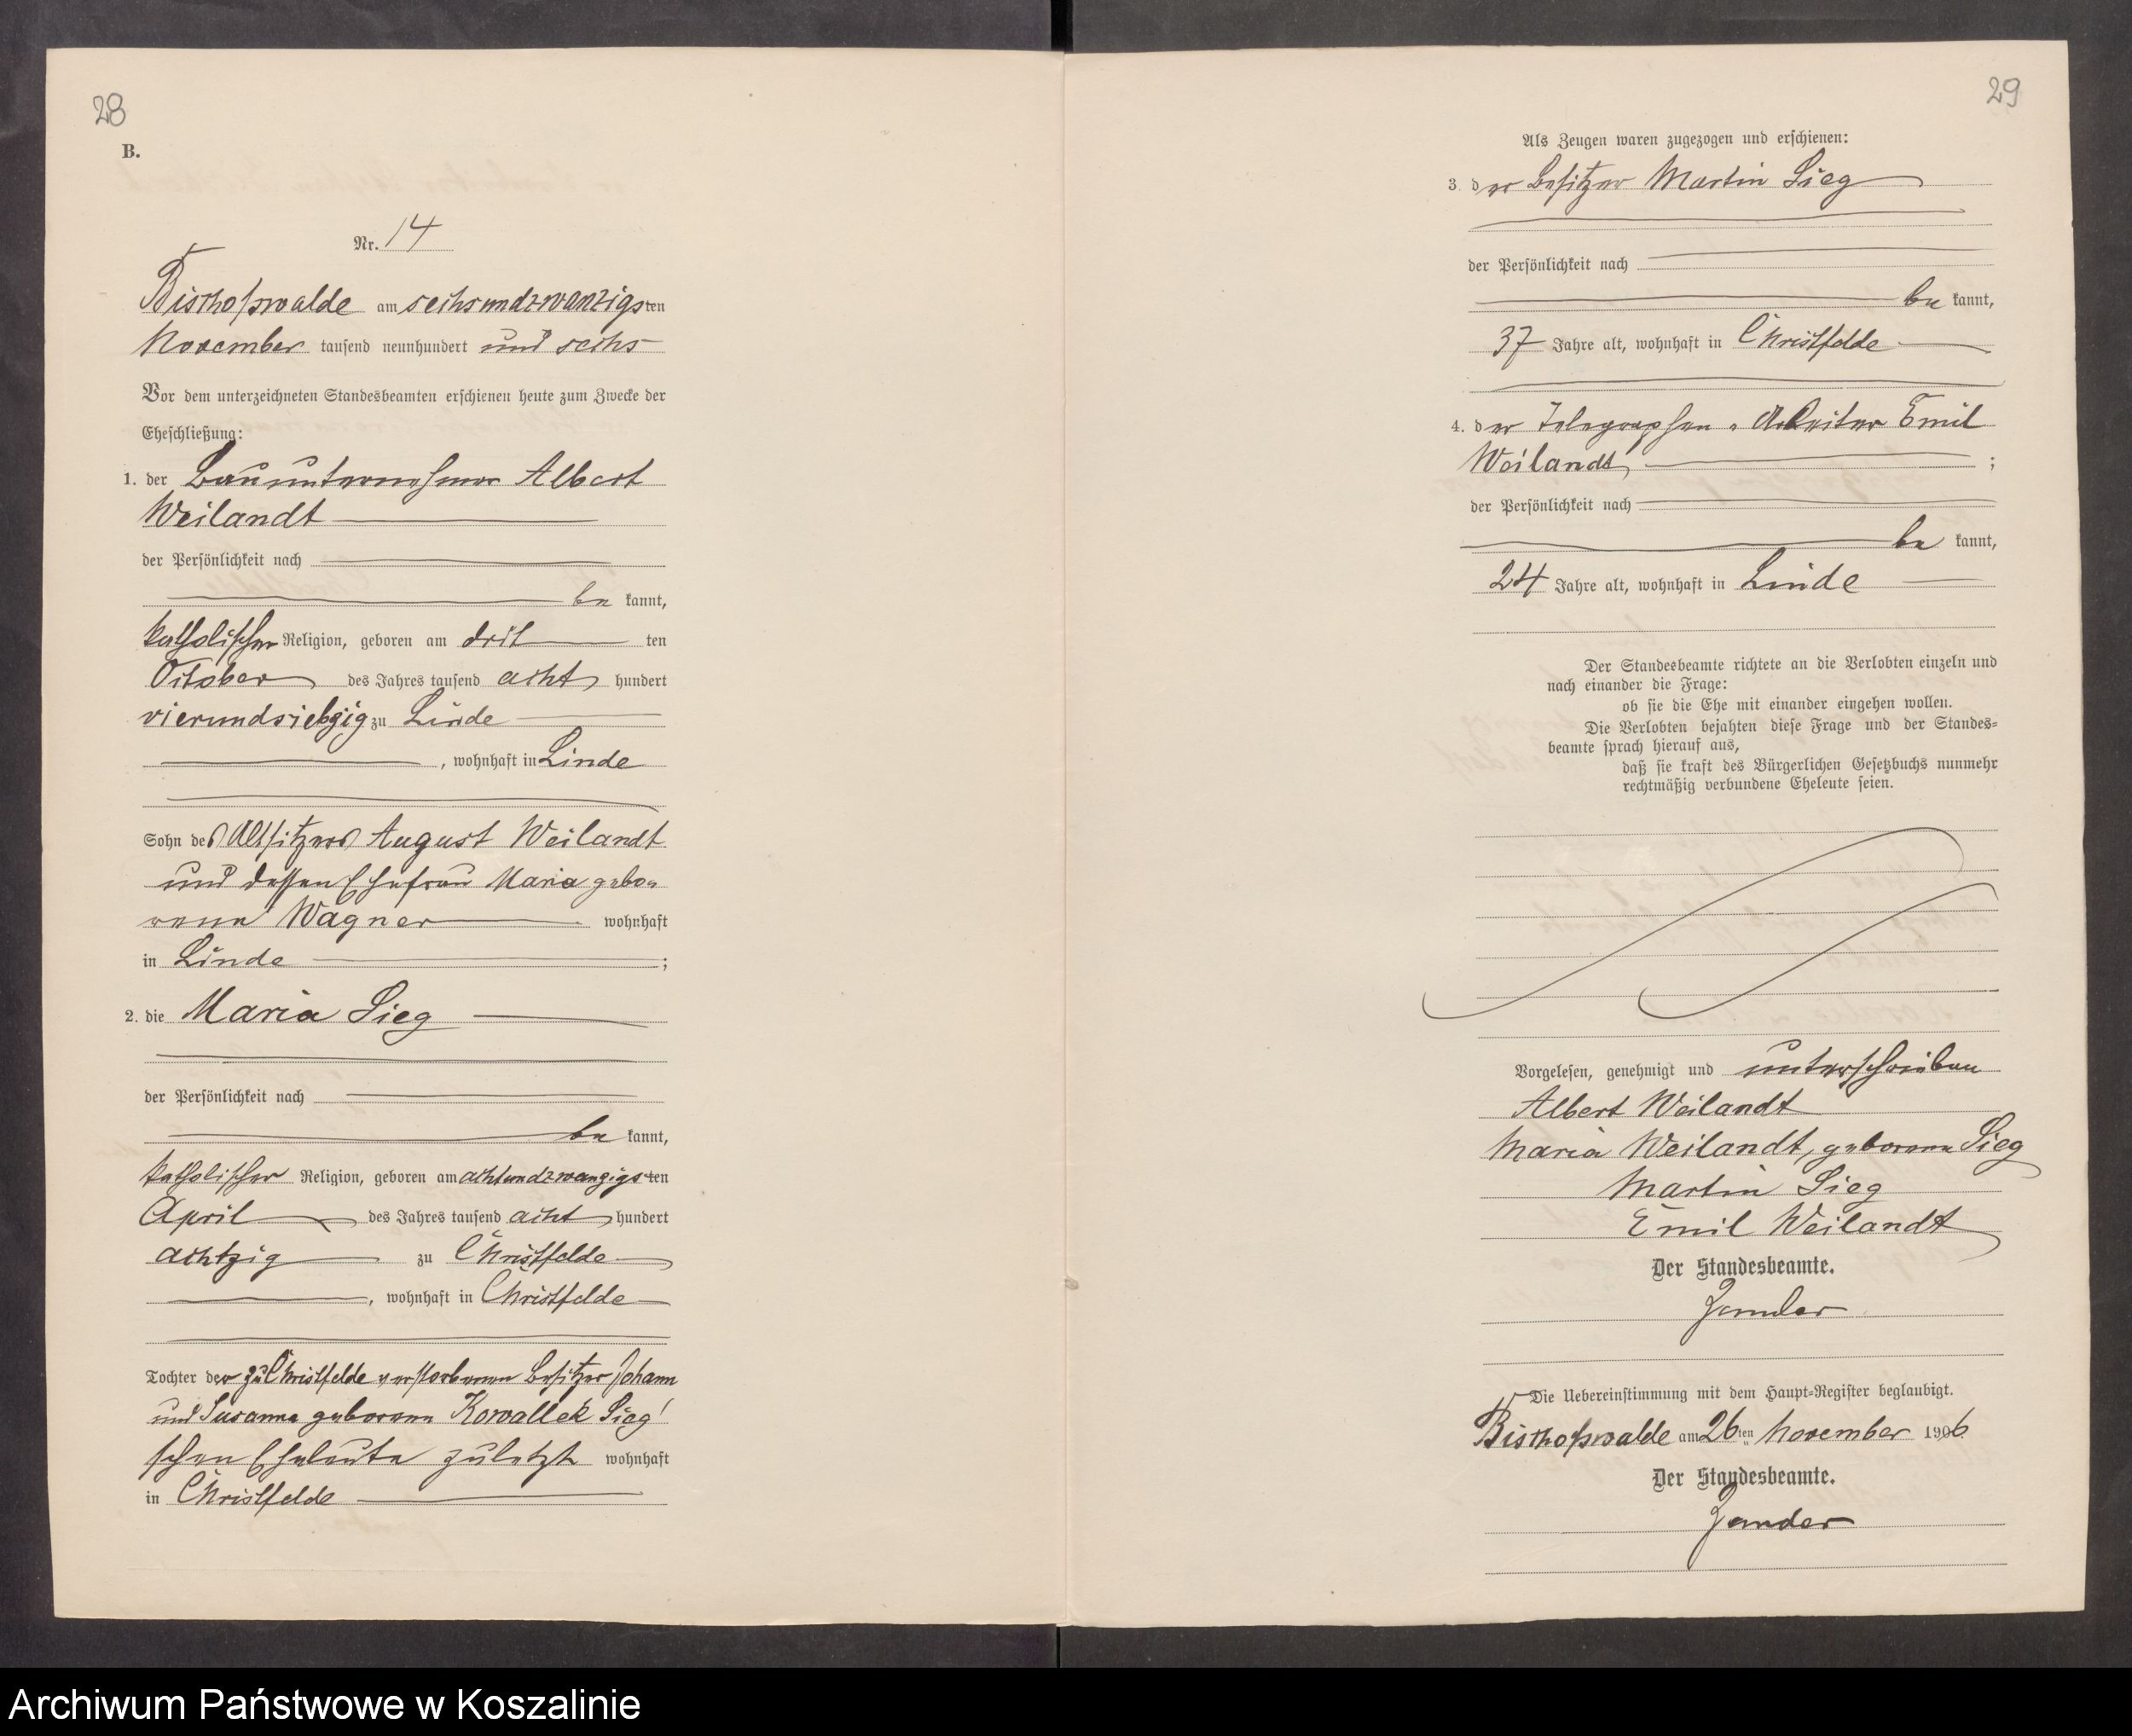 28
B.
Nr. 14
Bischofswalde am sechsundzwanzigsten
November tausend neunhundert und sechs
Vor dem unterzeichneten Standesbeamten erschienen heute zum Zwecke der
Eheschließung:
1. der Bauunternehmer Albert
Weilandt
der Persönlichkeit nach
be kannt,
katholischer Religion, geboren am drit ten
October des Jahres tausend acht hundert
vierundsiebzig zu Linde
, wohnhaft in Linde
Sohn des Altsitzers August Weilandt
und dessen Ehefrau Maria gebo-
rene Wagner wohnhaft
in Linde ;
2. die Maria Sieg
der Persönlichkeit nach
be kannt,
katholischer Religion, geboren am achtundzwanzigsten
April des Jahres tausend acht hundert
achtzig zu Christfelde
, wohnhaft in Christfelde
Tochter der zu Christfelde verstorbenen Besitzer Johann
und Susanna geborene Kowallek Sieg'
schen Eheleute zuletzt wohnhaft
in Christfelde
29
Als Zeugen waren zugezogen und erschienen:
3. der Besitzer Martin Sieg
der Persönlichkeit nach
be kannt,
37 Jahre alt, wohnhaft in Christfelde
4. der Telegraphen-Arbeiter Emil
Weilandt ;
der Persönlichkeit nach
be kannt,
24 Jahre alt, wohnhaft in Linde
Der Standesbeamte richtete an die Verlobten einzeln und
nach einander die Frage:
ob sie die Ehe mit einander eingehen wollen.
Die Verlobten bejahten diese Frage und der Standes-
beamte sprach hierauf aus,
daß sie kraft des Bürgerlichen Gesetzbuchs nunmehr
rechtmäßig verbundene Eheleute seien.
Vorgelesen, genehmigt und unterschrieben
Albert Weilandt
Maria Weilandt, geborene Sieg
Martin Sieg
Emil Weilandt
Der Standesbeamte.
Zander
Die Uebereinstimmung mit dem Haupt-Register beglaubigt.
Bischofswalde am 26ten November 1906
Der Standesbeamte.
Zander
Archiwum Państwowe w Koszalinie